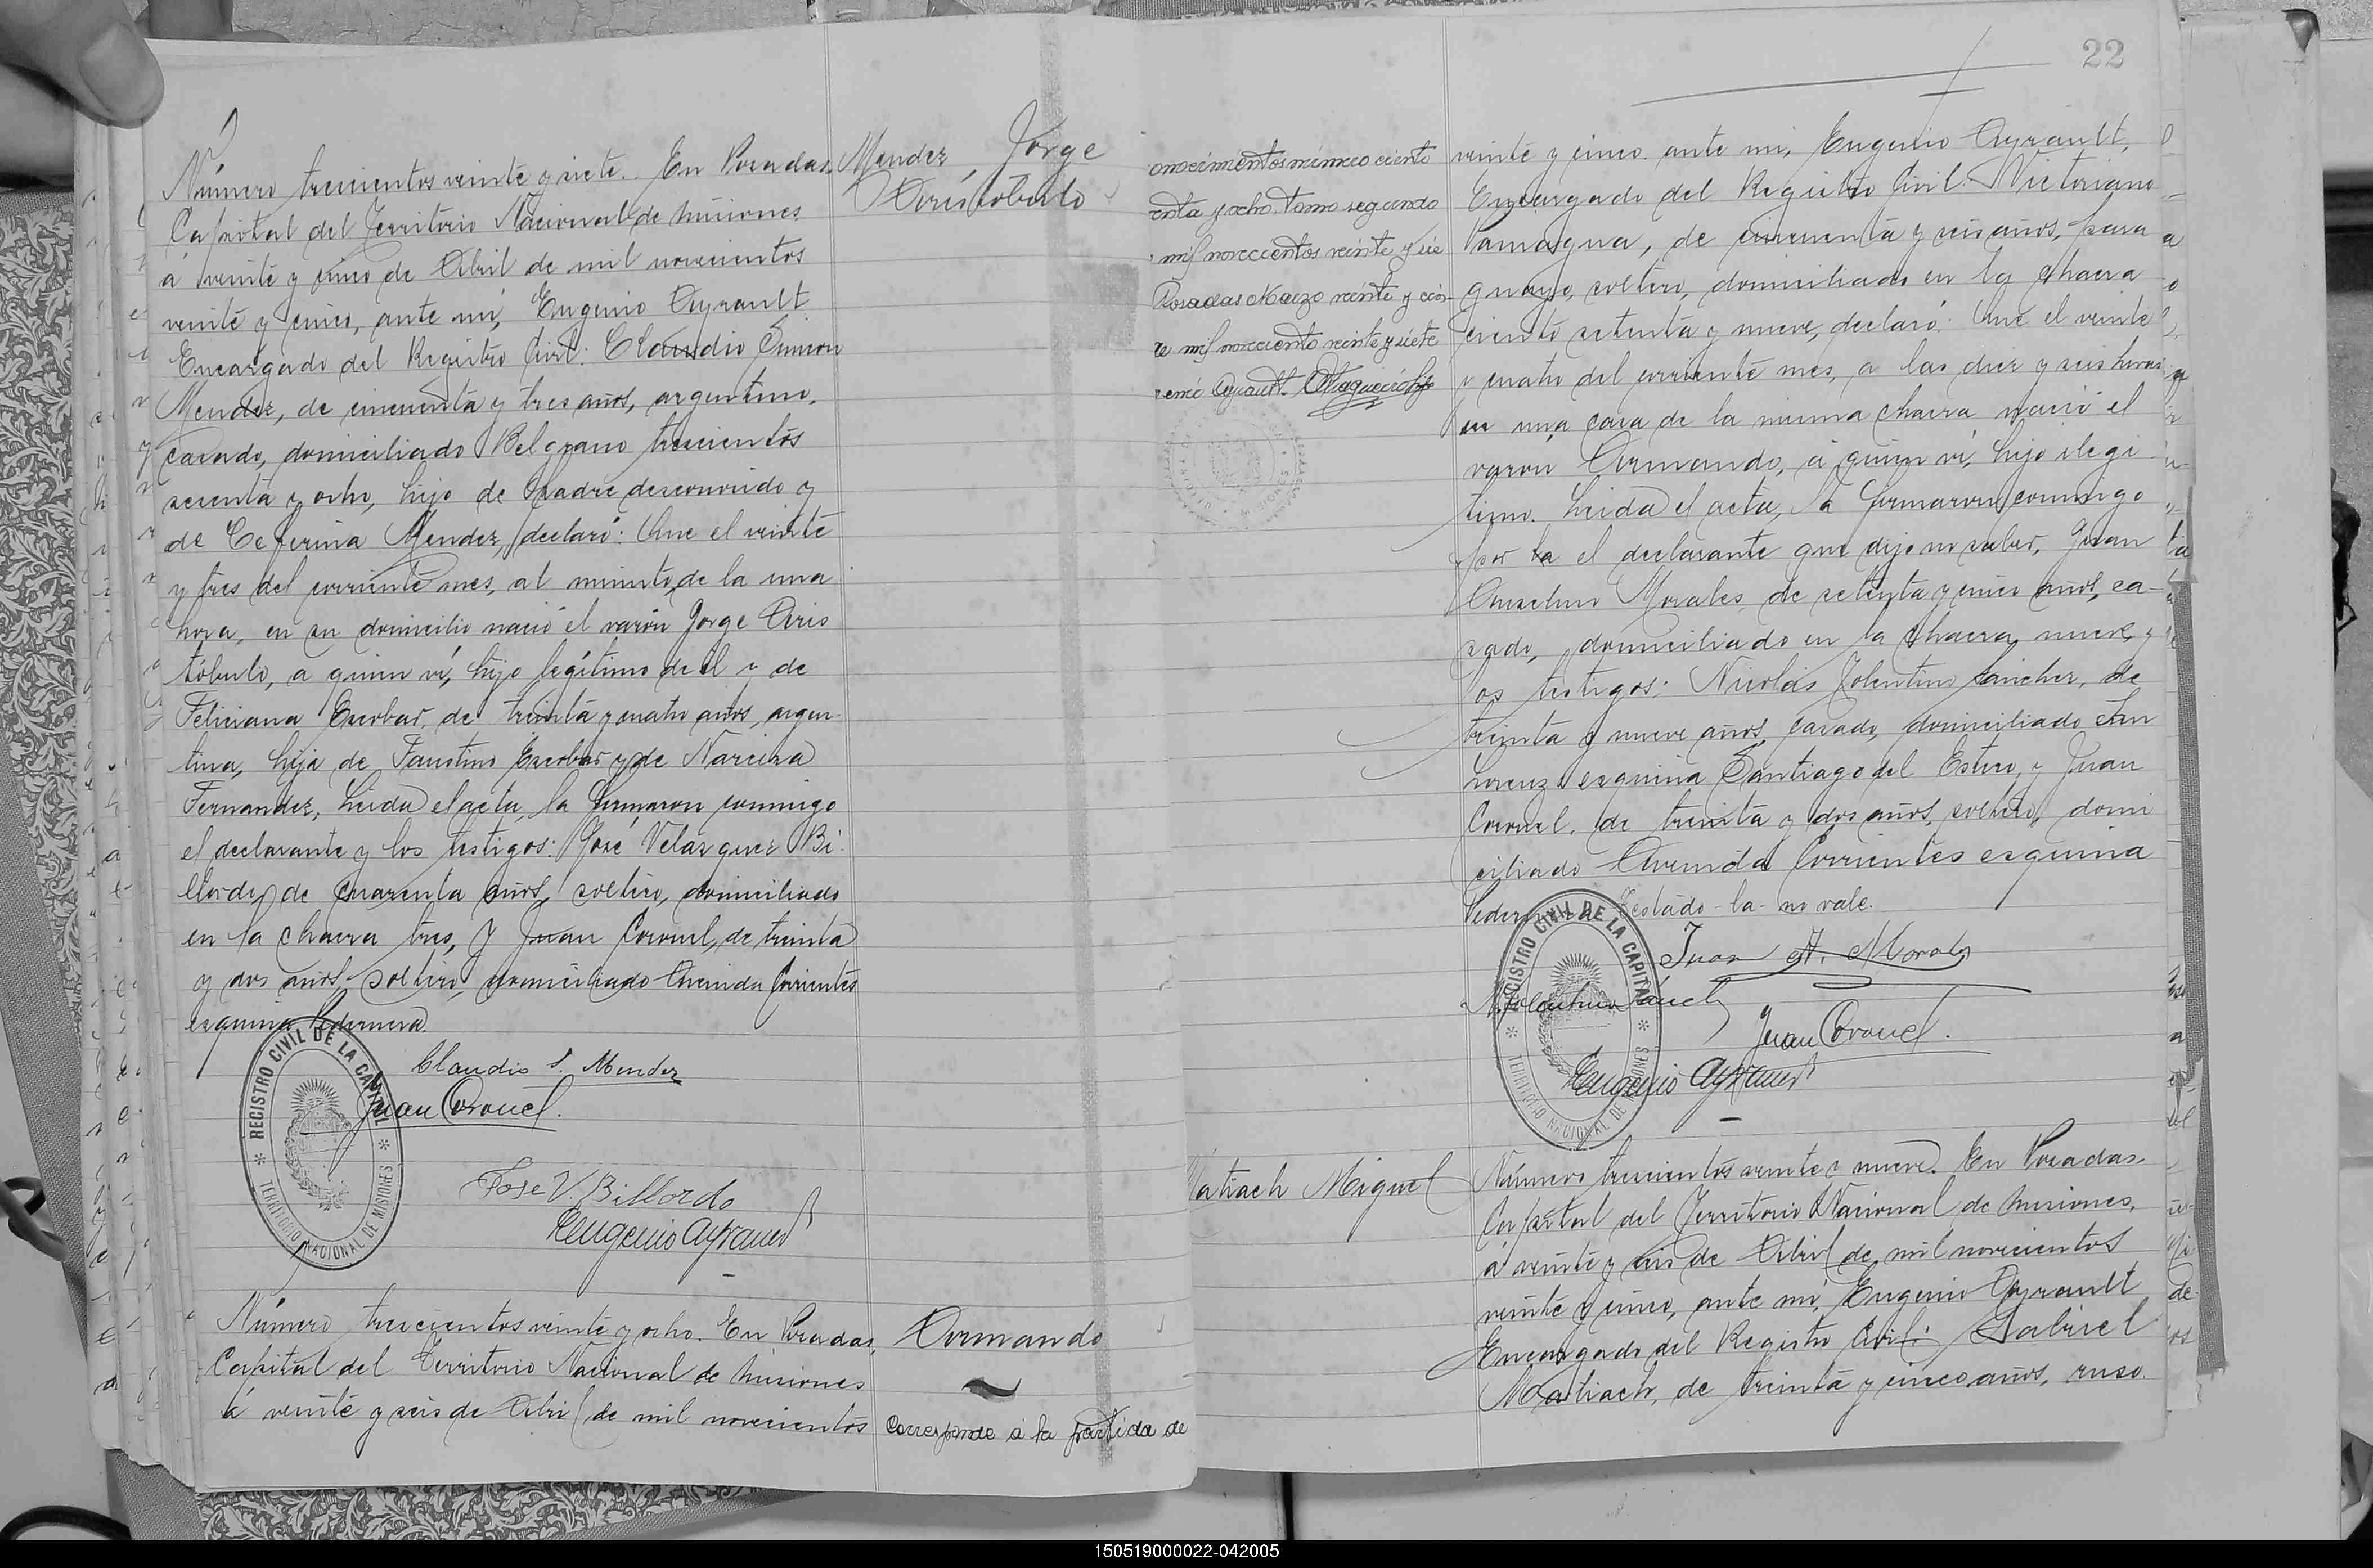 Mendez, Jorge
Aristóbulo
Número trescientos veinte y siete. En Posadas,
Capital del Territorio Nacional de Misiones
á veinte y cinco de Abril de mil novecientos
veinte y cinco, ante mí, Eugenio Ayrault
Encargado del Registro Civil: Claudio Simion
Mendez, de cincuenta y tres años, argentino,
casado, domiciliado Belgrano trescientos
sesenta y ocho, hijo de padre desconocido y
de Ceferina Mendez, declaró: Que el veinte
y tres del corriente mes, al minuto de la una
hora, en su domicilio nació el varón Jorge Aris
tóbulo, a quien ví, hijo legítimo de el y de
Feliciana Escobar, de treinta y cuatro años, argen-
tina, hija de Faustino Escobar y de Narcisa
Fernandez, Leida el acta, la firmaron conmigo
el declarante y los testigos: José Velazquez Bi-
llordo, de cuarenta años, soltero, domiciliado
en la chacra tres, y Juan Coronel, de treinta
y dos años, soltero, domiciliado Avenida Corrientes
esquina Pedernera.
Claudio S. Mendez
Juan Coronel.
REGISTRO CIVIL DE LA CAPITAL
TERRITORIO NACIONAL DE MISIONES
Jose V. Billordo
Eugenio Ayrault
Armando
Número trescientos veinte y ocho. En Posadas,
Capital del Territorio Nacional de Misiones
á veinte y seis de Abril de mil novecientos
Corresponde á la partida de
22
onocimientos número ciento
enta y ocho, tomo segundo
mil novecientos veinte y sie
Posadas Marzo veinte y cin-
de mil novecientos veinte y siete
Ayrault.
veinte y cinco. ante mi, Eugenio Ayrault,
Encargado del Registro Civil: Victoriano
Samagua, de cincuenta y seis años, para
guayo, soltero, domiciliado en la chacra
ciento setenta y nueve, declaró: Que el veinte
y cuatro del corriente mes, a las diez y seis horas
en una casa de la misma chacra nació el
varón Armando, á quien ví, hijo ilegí-
timo. Leida el acta, la firmaron conmigo
por la el declarante que dijo no saber, Juan
Anselmo Morales, de setenta y cinco años, ca-
sado, domiciliado en la chacra nueve, y
los testigos: Nicolás Tolentino Sánchez, de
treinta y nueve años, casado, domiciliado San
Lorenzo esquina Santiago del Estero, y Juan
Coronel, de treinta y dos años, soltero, domi
ciliado Avenida Corrientes esquina
Pedernera. Testado-la-no vale.
Juan A. Morales
N. Tolentino Sánchez
Juan Coronel.
Eugenio Ayrault
REGISTRO CIVIL DE LA CAPITAL
TERRITORIO NACIONAL DE MISIONES
Matiach Miguel
Número trescientos veinte y nueve. En Posadas,
Capital del Territorio Nacional de Misiones,
á veinte y seis de Abril de mil novecientos
veinte y cinco, ante mí, Eugenio Ayrault
Encargado del Registro Civil: Gabriel
Matiach, de treinta y cinco años, ruso.
150519000022-042005